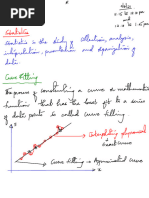 Notes
0.15 to 0.00 pm
and
Statistics
Statistics is the study of collection, analysis,
interpretation, presentation and organization of
data points.
Curve Fitting
The process of constructing a curve or mathematics
function that has the best fit to a series
of data points is called curve fitting
Interpolating polynomial
Exact curve
Curve fitting → Approximated curve
x